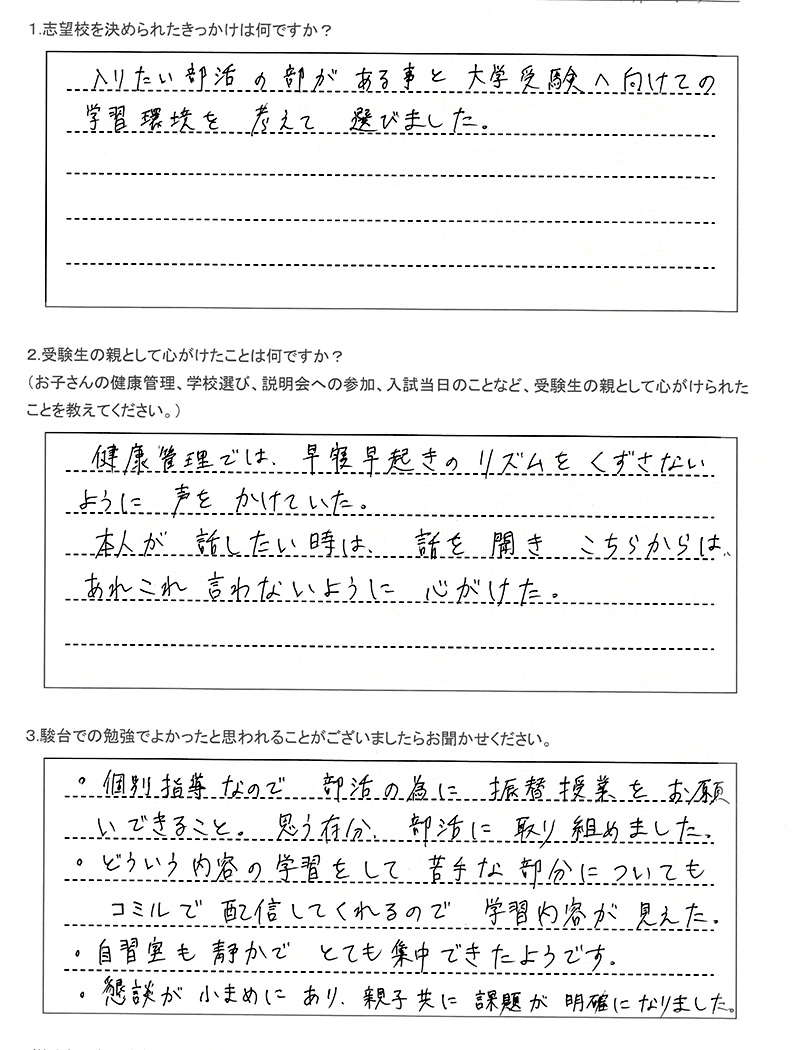 1.志望校を決められたきっかけは何ですか？
入りたい部活の部がある事と大学受験へ向けての
学習環境を考えて選びました。
2.受験生の親として心がけたことは何ですか？
（お子さんの健康管理、学校選び、説明会への参加、入試当日のことなど、受験生の親として心がけられた
ことを教えてください。）
健康管理では、早寝早起きのリズムをくずさない
ように声をかけていた。
本人が話したい時は、話を聞きこちらからは、
あれこれ言わないように心がけた。
3.駿台での勉強でよかったと思われることがございましたらお聞かせください。
・個別指導なので部活の為に振替授業をお願
いできること。思う存分、部活に取り組めました。
・どういう内容の学習をして苦手な部分についても
コミルで配信してくれるので学習内容が見えた。
・自習室も静かでとても集中できたようです。
・懇談が小まめにあり、親子共に課題が明確になりました。